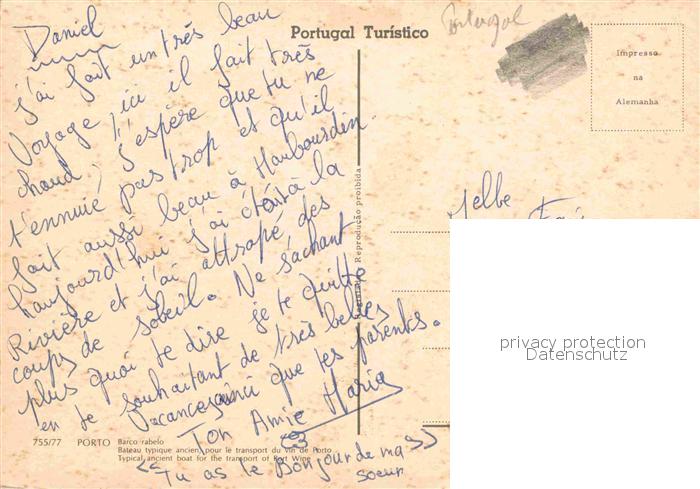 Daniel
J'ai fait un très beau
Voyage, ici il fait très
chaud, J'espère que tu ne
t'ennuié pas trop et qu'il
fait aussi beau à Haubourdin.
haujourd'hui j'ai été à la
Rivière et j'ai attrapé des
coups de soleil. Ne sachant
plus quoi te dire je te quitte
en te souhaitant de très belles
Vacances ainsi que tes parents.
Ton Amie Maria
<< Tu as le Bonjour de ma >>
soeur
Portugal Turístico
Portugal
Impresso
na
Alemanha
Reprodução proibida
privacy protection
Datenschutz
755/77 PORTO Barco rabelo
Bateau typique ancien, pour le transport du vin de Porto
Typical ancient boat for the transport of Port Wine